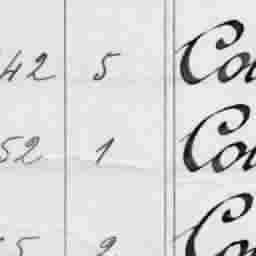 42 5 Co
52 1 Co
5 2 Co